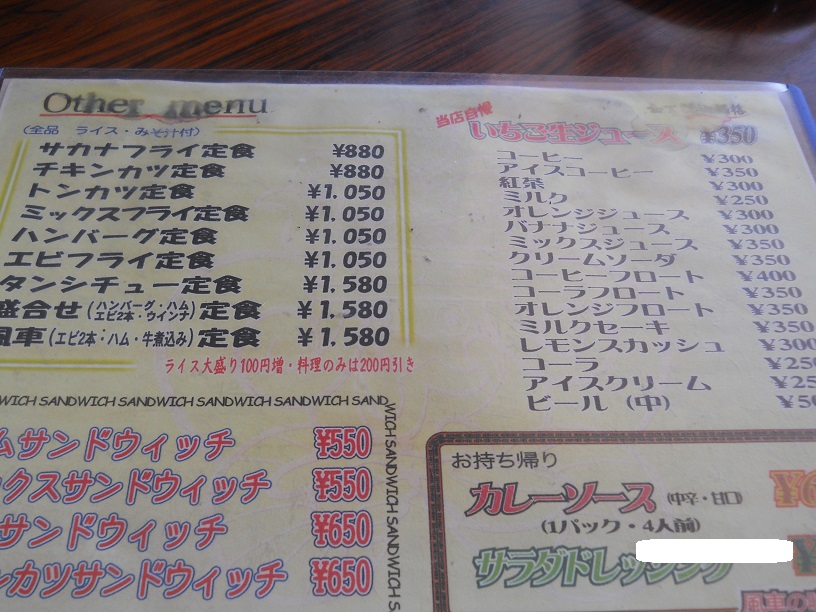 Other menu
(全品 ライス・みそ汁付)
サカナフライ定食 ¥880
チキンカツ定食 ¥880
トンカツ定食 ¥1.050
ミックスフライ定食 ¥1.050
ハンバーグ定食 ¥1.050
エビフライ定食 ¥1.050
タンシチュー定食 ¥1.580
盛合せ(ハンバーグ・ハム エビ2本・ウインナ)定食 ¥1.580
風車(エビ2本・ハム・牛煮込み)定食 ¥1.580
ライス大盛り100円増・料理のみは200円引き
WICH SANDWICH SANDWICH SANDWICH SANDWICH SAND
WICH SANDWICH SANDWICH SANDWICH SANDWICH S
ムサンドウィッチ ¥550
ックスサンドウィッチ ¥550
サンドウィッチ ¥650
ンカツサンドウィッチ ¥650
当店自慢
いちご生ジュース ¥350
コーヒー ¥300
アイスコーヒー ¥350
紅茶 ¥300
ミルク ¥250
オレンジジュース ¥300
バナナジュース ¥300
ミックスジュース ¥350
クリームソーダ ¥350
コーヒーフロート ¥400
コーラフロート ¥350
オレンジフロート ¥350
ミルクセーキ ¥350
レモンスカッシュ ¥300
コーラ ¥25
アイスクリーム ¥25
ビール (中) ¥5
お持ち帰り
カレーソース (中辛・甘口)
(1パック・4人前)
サラダドレッシング